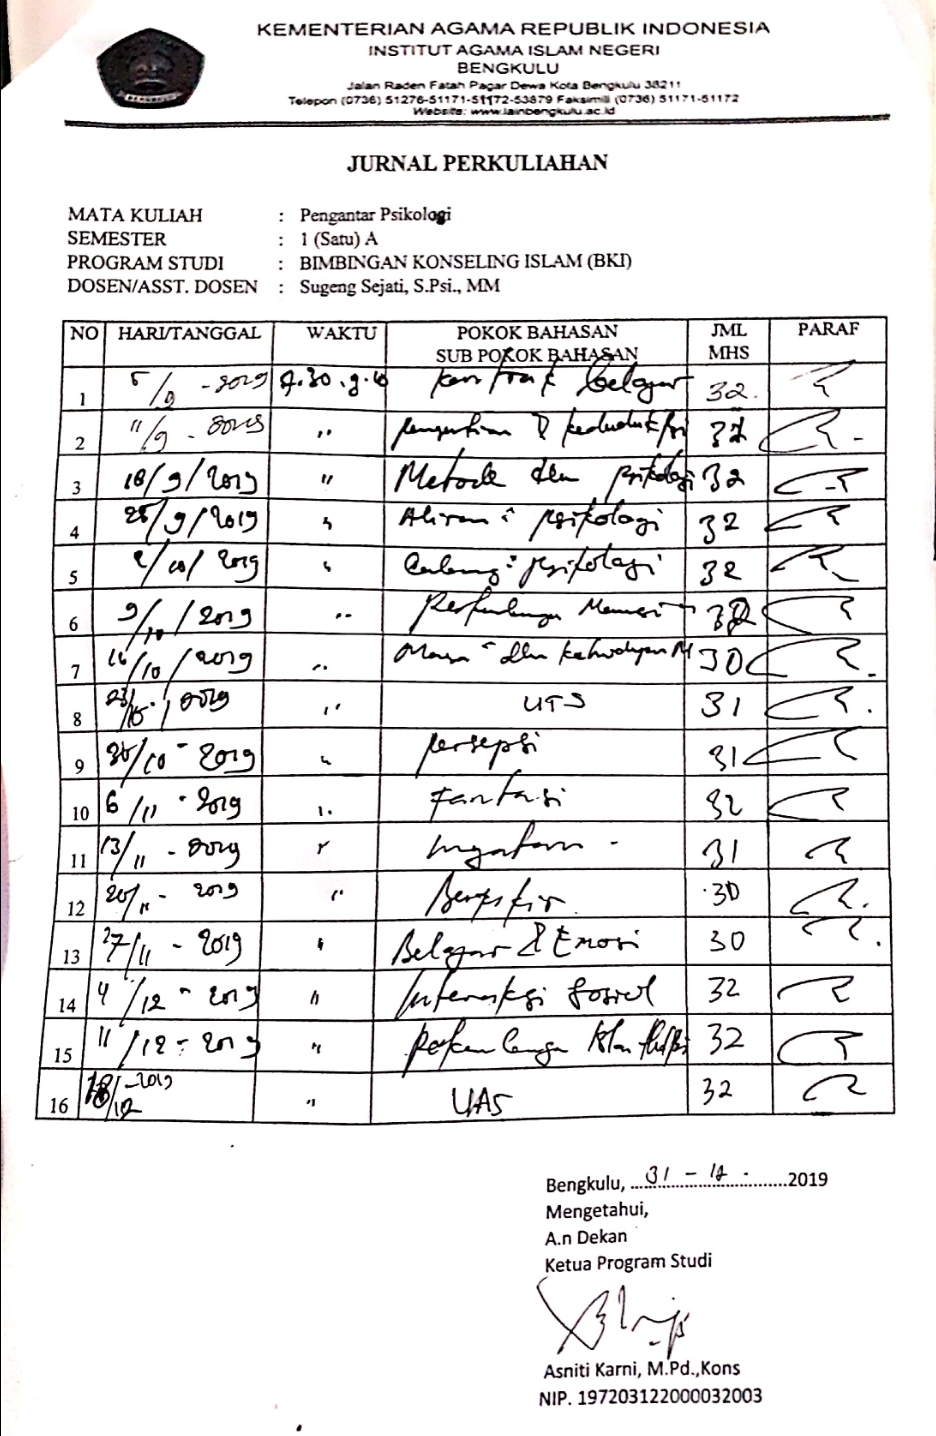 KEMENTERIAN AGAMA REPUBLIK INDONESIA
INSTITUT AGAMA ISLAM NEGERI
BENGKULU
Jalan Raden Fatah Pagar Dewa Kota Bengkulu 38211
Telepon (0736) 51276-51171-51172-53879 Faksimili (0736) 51171-51172
Website: www.iainbengkulu.ac.id
JURNAL PERKULIAHAN
MATA KULIAH : Pengantar Psikologi
SEMESTER : 1 (Satu) A
PROGRAM STUDI : BIMBINGAN KONSELING ISLAM (BKI)
DOSEN/ASST. DOSEN : Sugeng Sejati, S.Psi., MM
NO HARI/TANGGAL WAKTU POKOK BAHASAN SUB POKOK BAHASAN JML MHS PARAF
1 5/9 - 2019 Kontrak belajar 32.
2 11/9 - 2019 " Pengertian & 32
3 18/9/2019 " Metode dlm psikologi 32
4 25/9/2019 " Aliran" psikologi 32
5 2/10/2019 " Cabang" psikologi 32
6 9/10/2019 " 32
7 16/10/2019 " dlm 30
8 23/10/2019 " UTS 31
9 30/10 - 2019 " persepsi 31
10 6/11 - 2019 " Fantasi 32
11 13/11 - 2019 " Ingatan - 31
12 20/11 - 2019 " Berpikir 30
13 27/11 - 2019 " Belajar & Emosi 30
14 4/12 - 2019 " Interaksi Sosial 32
15 11/12 - 2019 " 32
16 18/12 - 2019 " UAS 32
Bengkulu, 31 - 12 - 2019
Mengetahui,
A.n Dekan
Ketua Program Studi
Asniti Karni, M.Pd.,Kons
NIP. 197203122000032003